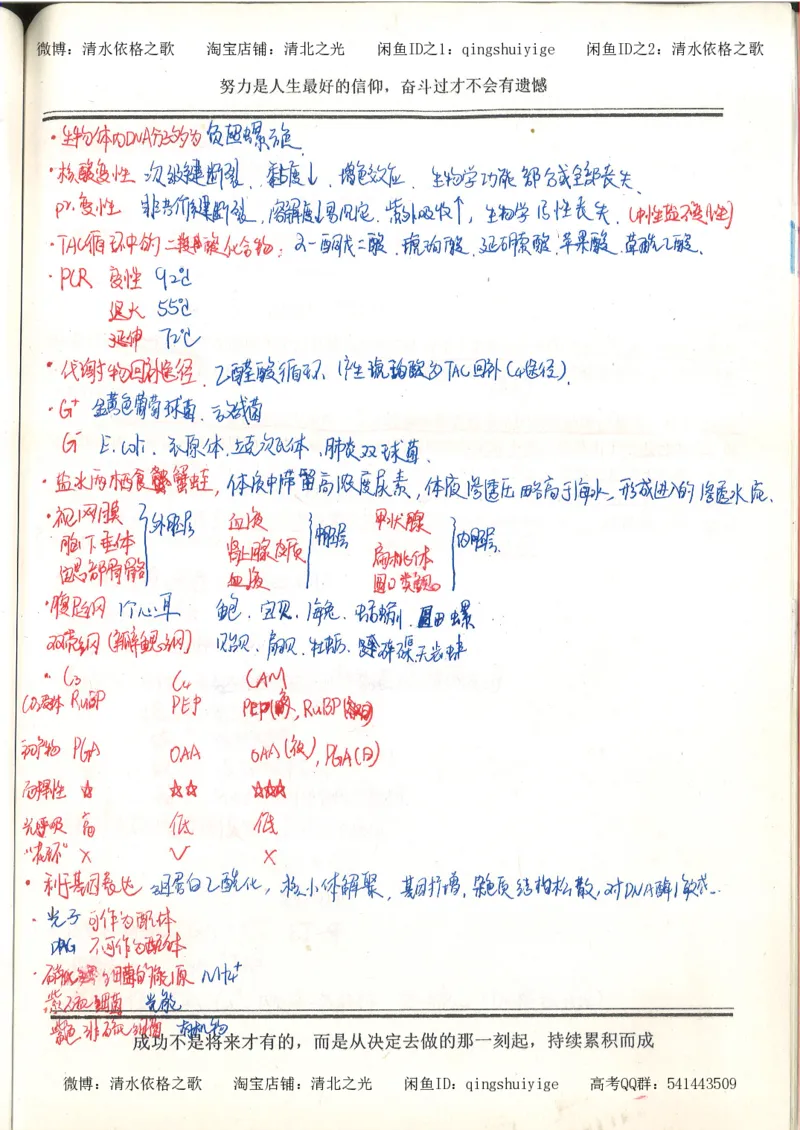 微博：清水依格之歌 淘宝店铺：清北之光 闲鱼ID之1：qingshuiyige 闲鱼ID之2：清水依格之歌
努力是人生最好的信仰，奋斗过才不会有遗憾
·生物体内DNA分子均为负超螺旋.
·核酸变性 次级键断裂、黏度↓、增色效应、生物学功能部分或全部丧失.
pr.变性 非共价键断裂,溶解度↓易沉淀、紫外吸收↑,生物学活性丧失.(中性盐不变性)
·TAC循环中的二羧酸化合物：α-酮戊二酸.琥珀酸.延胡索酸.苹果酸.草酰乙酸.
·PCR 变性 92℃
退火 55℃
延伸 72℃
·代谢物回补途径.乙醛酸循环、产生琥珀酸为TAC回补(4途径).
·G⁺ 金黄色葡萄球菌.
G⁻ E.coli.衣原体.立克次氏体.肺炎双球菌.
·盐水两栖食蟹蟹蛙,体液中滞留高浓度尿素,体液渗透压略高于海水,形成进入的渗透水流.
·视网膜 血液 甲状腺
脑下垂体 }外胚层 肾上腺皮质 }中胚层 扁桃体 }内胚层.
骨骼 血液
·腹足纲 1个心耳 鲍.宝贝.海兔.蜗牛.圆田螺
双壳纲(瓣鳃纲) 贻贝.扇贝.牡蛎.砗磲.无齿蚌
·C3 C4 CAM
CO₂受体 RuBP PEP PEP(夜),RuBP(日)
初产物 PGA OAA OAA(夜),PGA(日)
耐旱性 ☆ ☆☆ ☆☆☆
光呼吸 高 低 低
"花环" × ✓ ×
·利于基因表达 组蛋白乙酰化,核小体解聚,基因扩增,染色质结构松散,对DNA酶I敏感.
·光子 可作为配体
DAG 不可作为配体
·硝化细菌的能源 NH₄⁺
紫硫细菌 光能
紫色非硫细菌 有机物
成功不是将来才有的，而是从决定去做的那一刻起，持续累积而成
微博：清水依格之歌 淘宝店铺：清北之光 闲鱼ID：qingshuiyige 高考QQ群：541443509